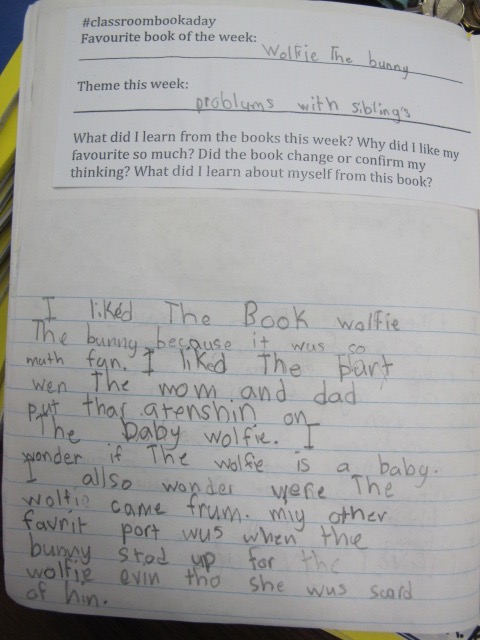 #classroombookaday
Favourite book of the week: Wolfie The bunny
Theme this week:
problums with sibling's
What did I learn from the books this week? Why did I like my
favourite so much? Did the book change or confirm my
thinking? What did I learn about myself from this book?
I liked The Book wolfie
The bunny because it wus so
muth fun. I liked The part
wen The mom and dad
put thar atenshin on
The baby wolfie. I
wonder if The wolfie is a baby.
I allso wonder were The
wolfie came frum. my other
favrit port wus when the
bunny stod up for the
wolfie evin tho she wus scard
of him.